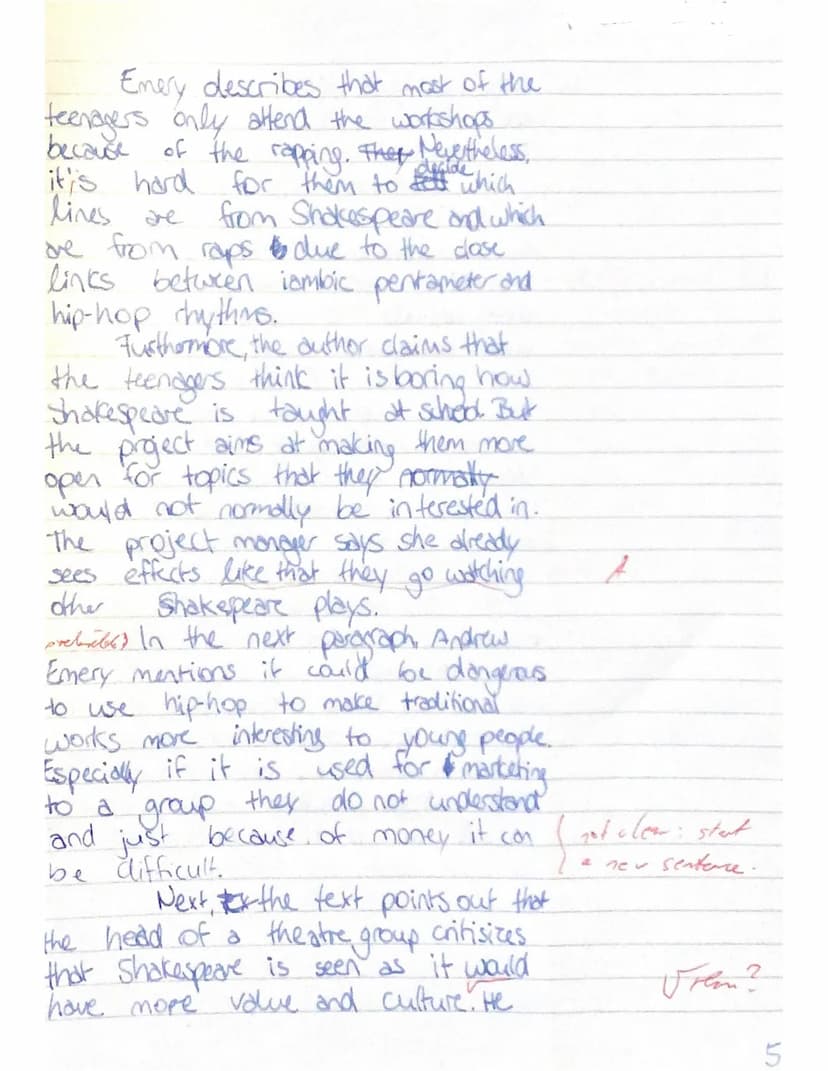 Emery describes that most of the
teenagers only attend the workshops
because of the rapping. They Nevertheless,
it's hard for them to decide which
lines are from Shakespeare and which
are from raps due to the close
links between iambic pentameter and
hip-hop rhythms.
Furthermore, the author claims that
the teenagers think it is boring how
Shakespeare is taught at school. But
the project aims at making them more
open for topics that they normally
would not normally be interested in.
The project manager says she already
sees effects like that they go watching A
other Shakespeare plays.
In the next paragraph, Andrew
Emery mentions it could be dangerous
to use hip-hop to make traditional
works more interesting to young people.
Especially if it is used for marketing
to a group they do not understand
and just because of money it can not clear: start
be difficult. a new sentence.
Next, the text points out that
the head of a theatre group critisizes
that Shakespeare is seen as it would
have more value and culture. He
5